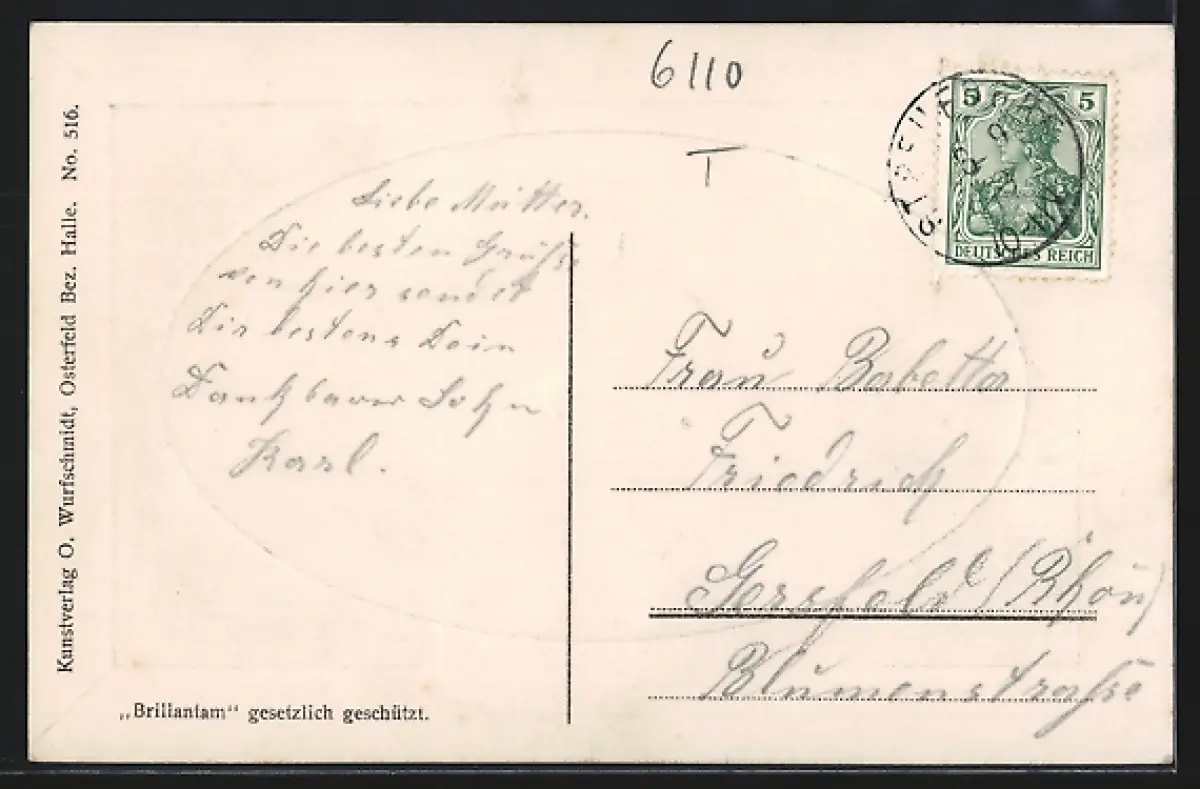 6110
T
5 5
DEUTSCHES REICH
Kunstverlag O. Wurfschmidt, Osterfeld Bez. Halle. No. 516.
Liebe Mutter.
Die besten Grüße
von hier sendet
Dir bestens Dein
Dankbarer Sohn
Karl.
Frau Babetta
Friedrich
Gersfeld (Rhön)
Blumenstraße
„Brillantam" gesetzlich geschützt.